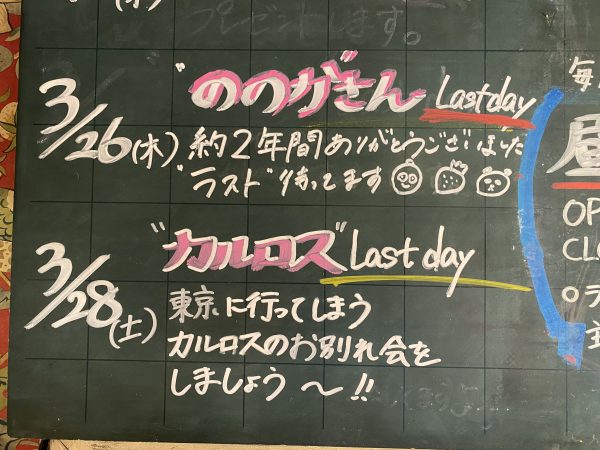 プレゼントします。
3/26(木)
"ののがさん Last day
約2年間ありがとうございました
"ラスト"待ってます
3/28(土)
"カルロス" Last day
東京に行ってしまう
カルロスのお別れ会を
しましょう〜!!
毎
昼
OP
CLO
○ラ
主